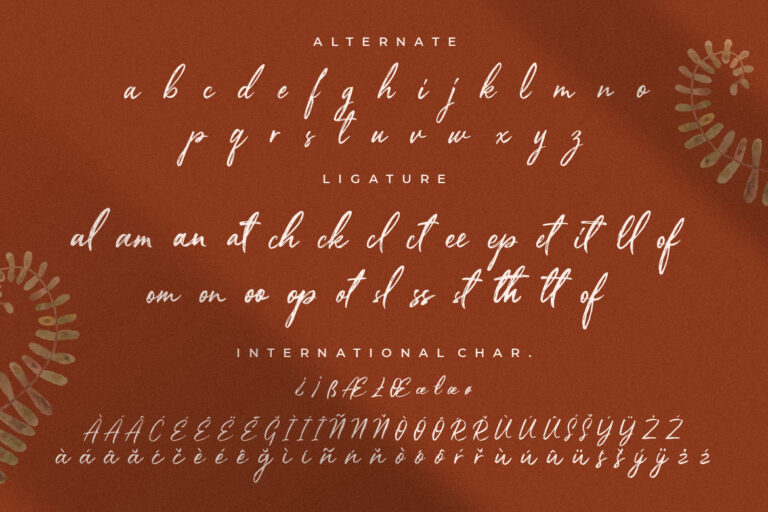 ALTERNATE
a b c d e f g h i j k l m n o
p q r s t u v w x y z
LIGATURE
al am an at ch ck cl ct ee ep et it ll of
om on oo op ot sl ss st th tt of
INTERNATIONAL CHAR.
¿ ¡ ß Æ Ł Œ æ ł œ ø
À Á Â Ć É È Ê Ë Ē Ğ Ì Í Î Ñ Ń Ň Ò Ó Ô Ŕ Ř Ù Ú Ü Û Ś Š Ý Ÿ Ż Ź
à á â ă ć č è é ê ğ ì í ñ ń ň ò ó ô ř ŕ ù ú û ü ş š ý ÿ ż ź